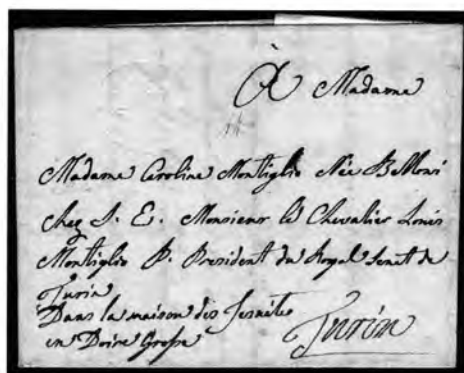 À Madame
Madame Caroline Montiglio Née Belloni
chez S. E. Monsieur le Chevalier Louis
Montiglio P. President du Royal Senat de
Turin
Dans la maison des Jesuites
en Doire Grosse
Turin